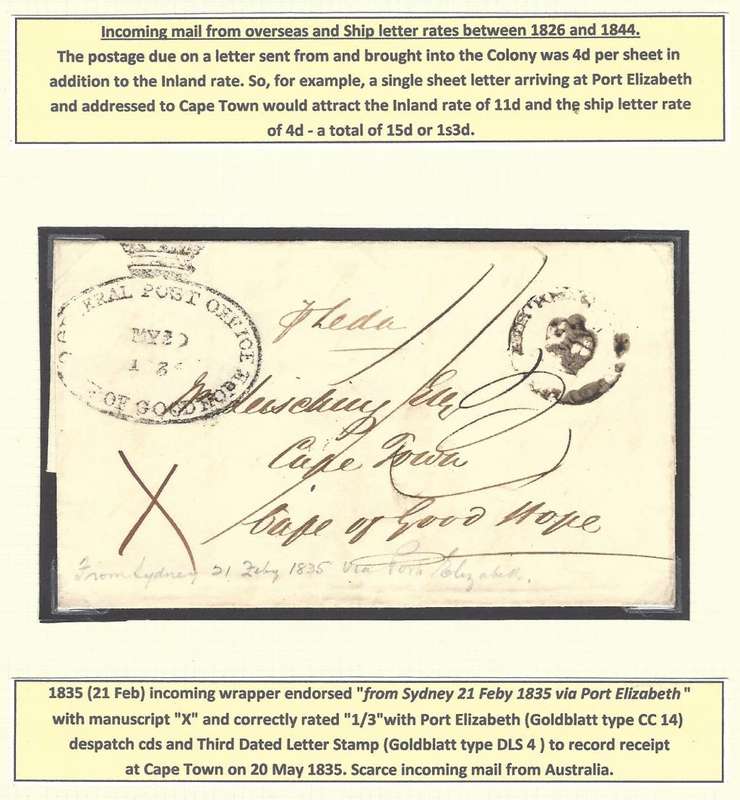 Incoming mail from overseas and Ship letter rates between 1826 and 1844.
The postage due on a letter sent from and brought into the Colony was 4d per sheet in
addition to the Inland rate. So, for example, a single sheet letter arriving at Port Elizabeth
and addressed to Cape Town would attract the Inland rate of 11d and the ship letter rate
of 4d - a total of 15d or 1s3d.
GENERAL POST OFFICE
MY20
OF GOOD HOPE
1/3
Leda
Esq
Cape Town
Cape of Good Hope
X
From Sydney 21 Feby 1835 via Port Elizabeth.
1835 (21 Feb) incoming wrapper endorsed "from Sydney 21 Feby 1835 via Port Elizabeth"
with manuscript "X" and correctly rated "1/3"with Port Elizabeth (Goldblatt type CC 14)
despatch cds and Third Dated Letter Stamp (Goldblatt type DLS 4 ) to record receipt
at Cape Town on 20 May 1835. Scarce incoming mail from Australia.